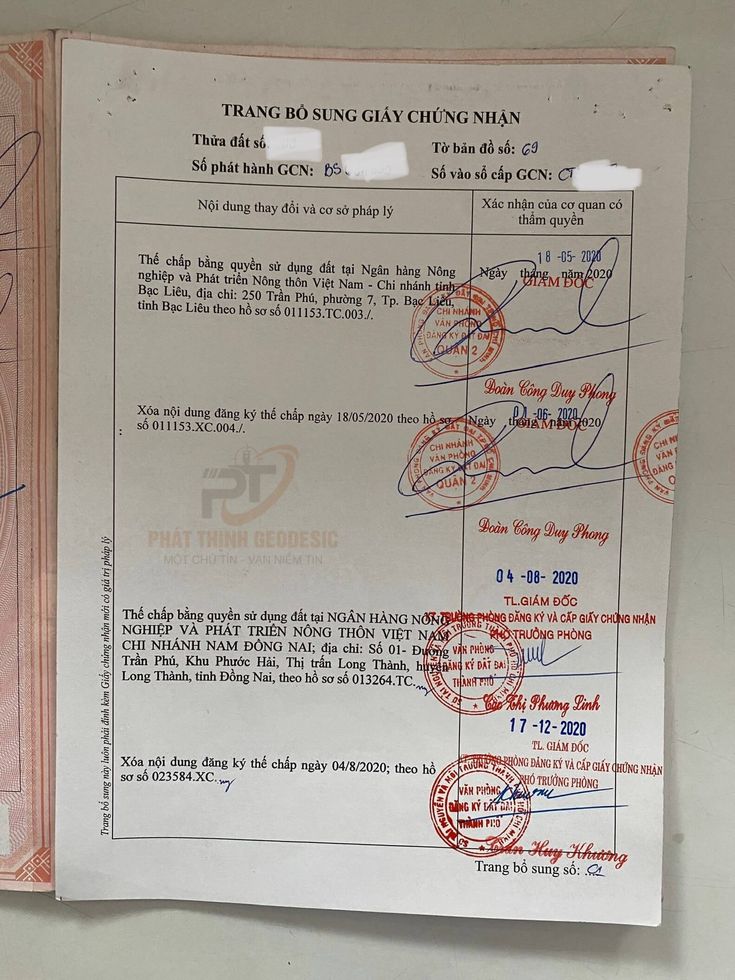 TRANG BỔ SUNG GIẤY CHỨNG NHẬN
Thửa đất số
Tờ bản đồ số: 69
Số phát hành GCN: BS
Số vào sổ cấp GCN: CT
Nội dung thay đổi và cơ sở pháp lý
Xác nhận của cơ quan có
thẩm quyền
Thế chấp bằng quyền sử dụng đất tại Ngân hàng Nông
nghiệp và Phát triển Nông thôn Việt Nam - Chi nhánh tỉnh
Bạc Liêu, địa chỉ: 250 Trần Phú, phường 7, Tp. Bạc Liêu,
tỉnh Bạc Liêu theo hồ sơ số 011153.TC.003./.
18 -05- 2020
Ngày tháng năm 2020
GIÁM ĐỐC
CHI NHÁNH
VĂN PHÒNG
ĐĂNG KÝ ĐẤT ĐAI
QUẬN 2
Đoàn Công Duy Phong
Xóa nội dung đăng ký thế chấp ngày 18/05/2020 theo hồ sơ
số 011153.XC.004./.
01 -06- 2020
Ngày tháng năm 2020
GIÁM ĐỐC
CHI NHÁNH
VĂN PHÒNG
ĐĂNG KÝ ĐẤT ĐAI
QUẬN 2
CHI NH
VĂN P
ĐĂNG KÝ
QUẬ
Đoàn Công Duy Phong
PT
PHÁT THỊNH GEODESIC
MỘT CHỮ TÍN - VẠN NIỀM TIN
04 -08- 2020
TL.GIÁM ĐỐC
TRƯỞNG PHÒNG ĐĂNG KÝ VÀ CẤP GIẤY CHỨNG NHẬN
PHÓ TRƯỞNG PHÒNG
Thế chấp bằng quyền sử dụng đất tại NGÂN HÀNG NÔNG
NGHIỆP VÀ PHÁT TRIỂN NÔNG THÔN VIỆT NAM
CHI NHÁNH NAM ĐỒNG NAI; địa chỉ: Số 01- Đường
Trần Phú, Khu Phước Hải, Thị trấn Long Thành, huyện
Long Thành, tỉnh Đồng Nai, theo hồ sơ số 013264.TC.
VĂN PHÒNG
ĐĂNG KÝ ĐẤT ĐAI
THÀNH PHỐ
Cao Thị Phương Linh
17 -12- 2020
TL. GIÁM ĐỐC
PHÒNG ĐĂNG KÝ VÀ CẤP GIẤY CHỨNG NHẬN
PHÓ TRƯỞNG PHÒNG
Xóa nội dung đăng ký thế chấp ngày 04/8/2020; theo hồ
sơ số 023584.XC.
VĂN PHÒNG
ĐĂNG KÝ ĐẤT ĐAI
THÀNH PHỐ
Huy Khương
Trang bổ sung số: 01
Trang bổ sung này luôn phải đính kèm Giấy chứng nhận mới có giá trị pháp lý